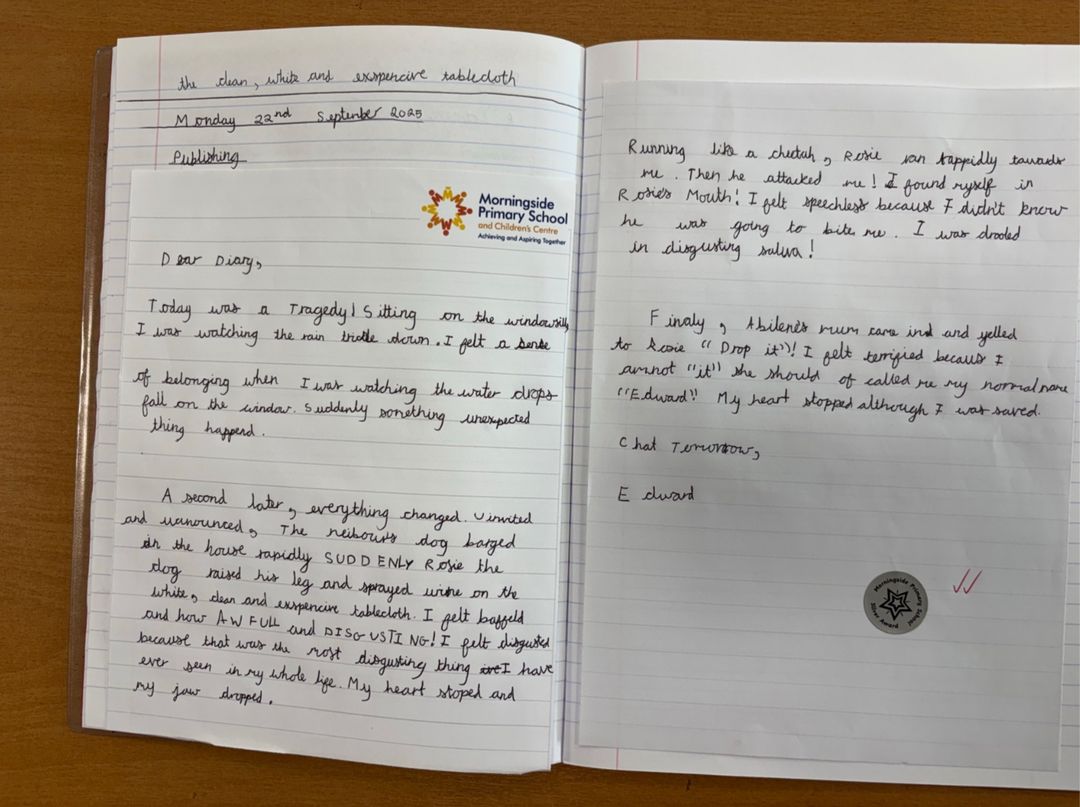 the clean, white and exspencive tablecloth
Monday 22nd September 2025
Publishing
Morningside
Primary School
and Children's Centre
Achieving and Aspiring Together
Dear Diary,
Today was a Tragedy! Sitting on the windowsill,
I was watching the rain trickle down. I felt a sense
of belonging when I was watching the water drops
fall on the window. Suddenly something unexpected
thing happend.
A second later, everything changed. Uinvited
and uanounced, The neibours dog barged
in the house rapidly SUDDENLY Rosie the
dog raised his leg and sprayed urine on the
white, clean and exspencive tablecloth. I felt baffeld
and how AWFULL and DISGUSTING! I felt disgusted
because that was the most disgusting thing I have
ever seen in my whole life. My heart stoped and
my jaw dropped.
Running like a cheetah, Rosie ran rappidly towards
me. Then he attacked me! I found myself in
Rosie's Mouth! I felt speechless because I didn't know
he was going to bite me. I was drooled
in disgusting saliva!
Finaly, Abilene's mum came in and yelled
to Rosie "Drop it"! I felt terrified becaus I
amnot "it" she should of called me my normal name
"Edward!" My heart stopped although I was saved.
Chat Tomorrow,
Edward
Morningside Primary School
Silver Award